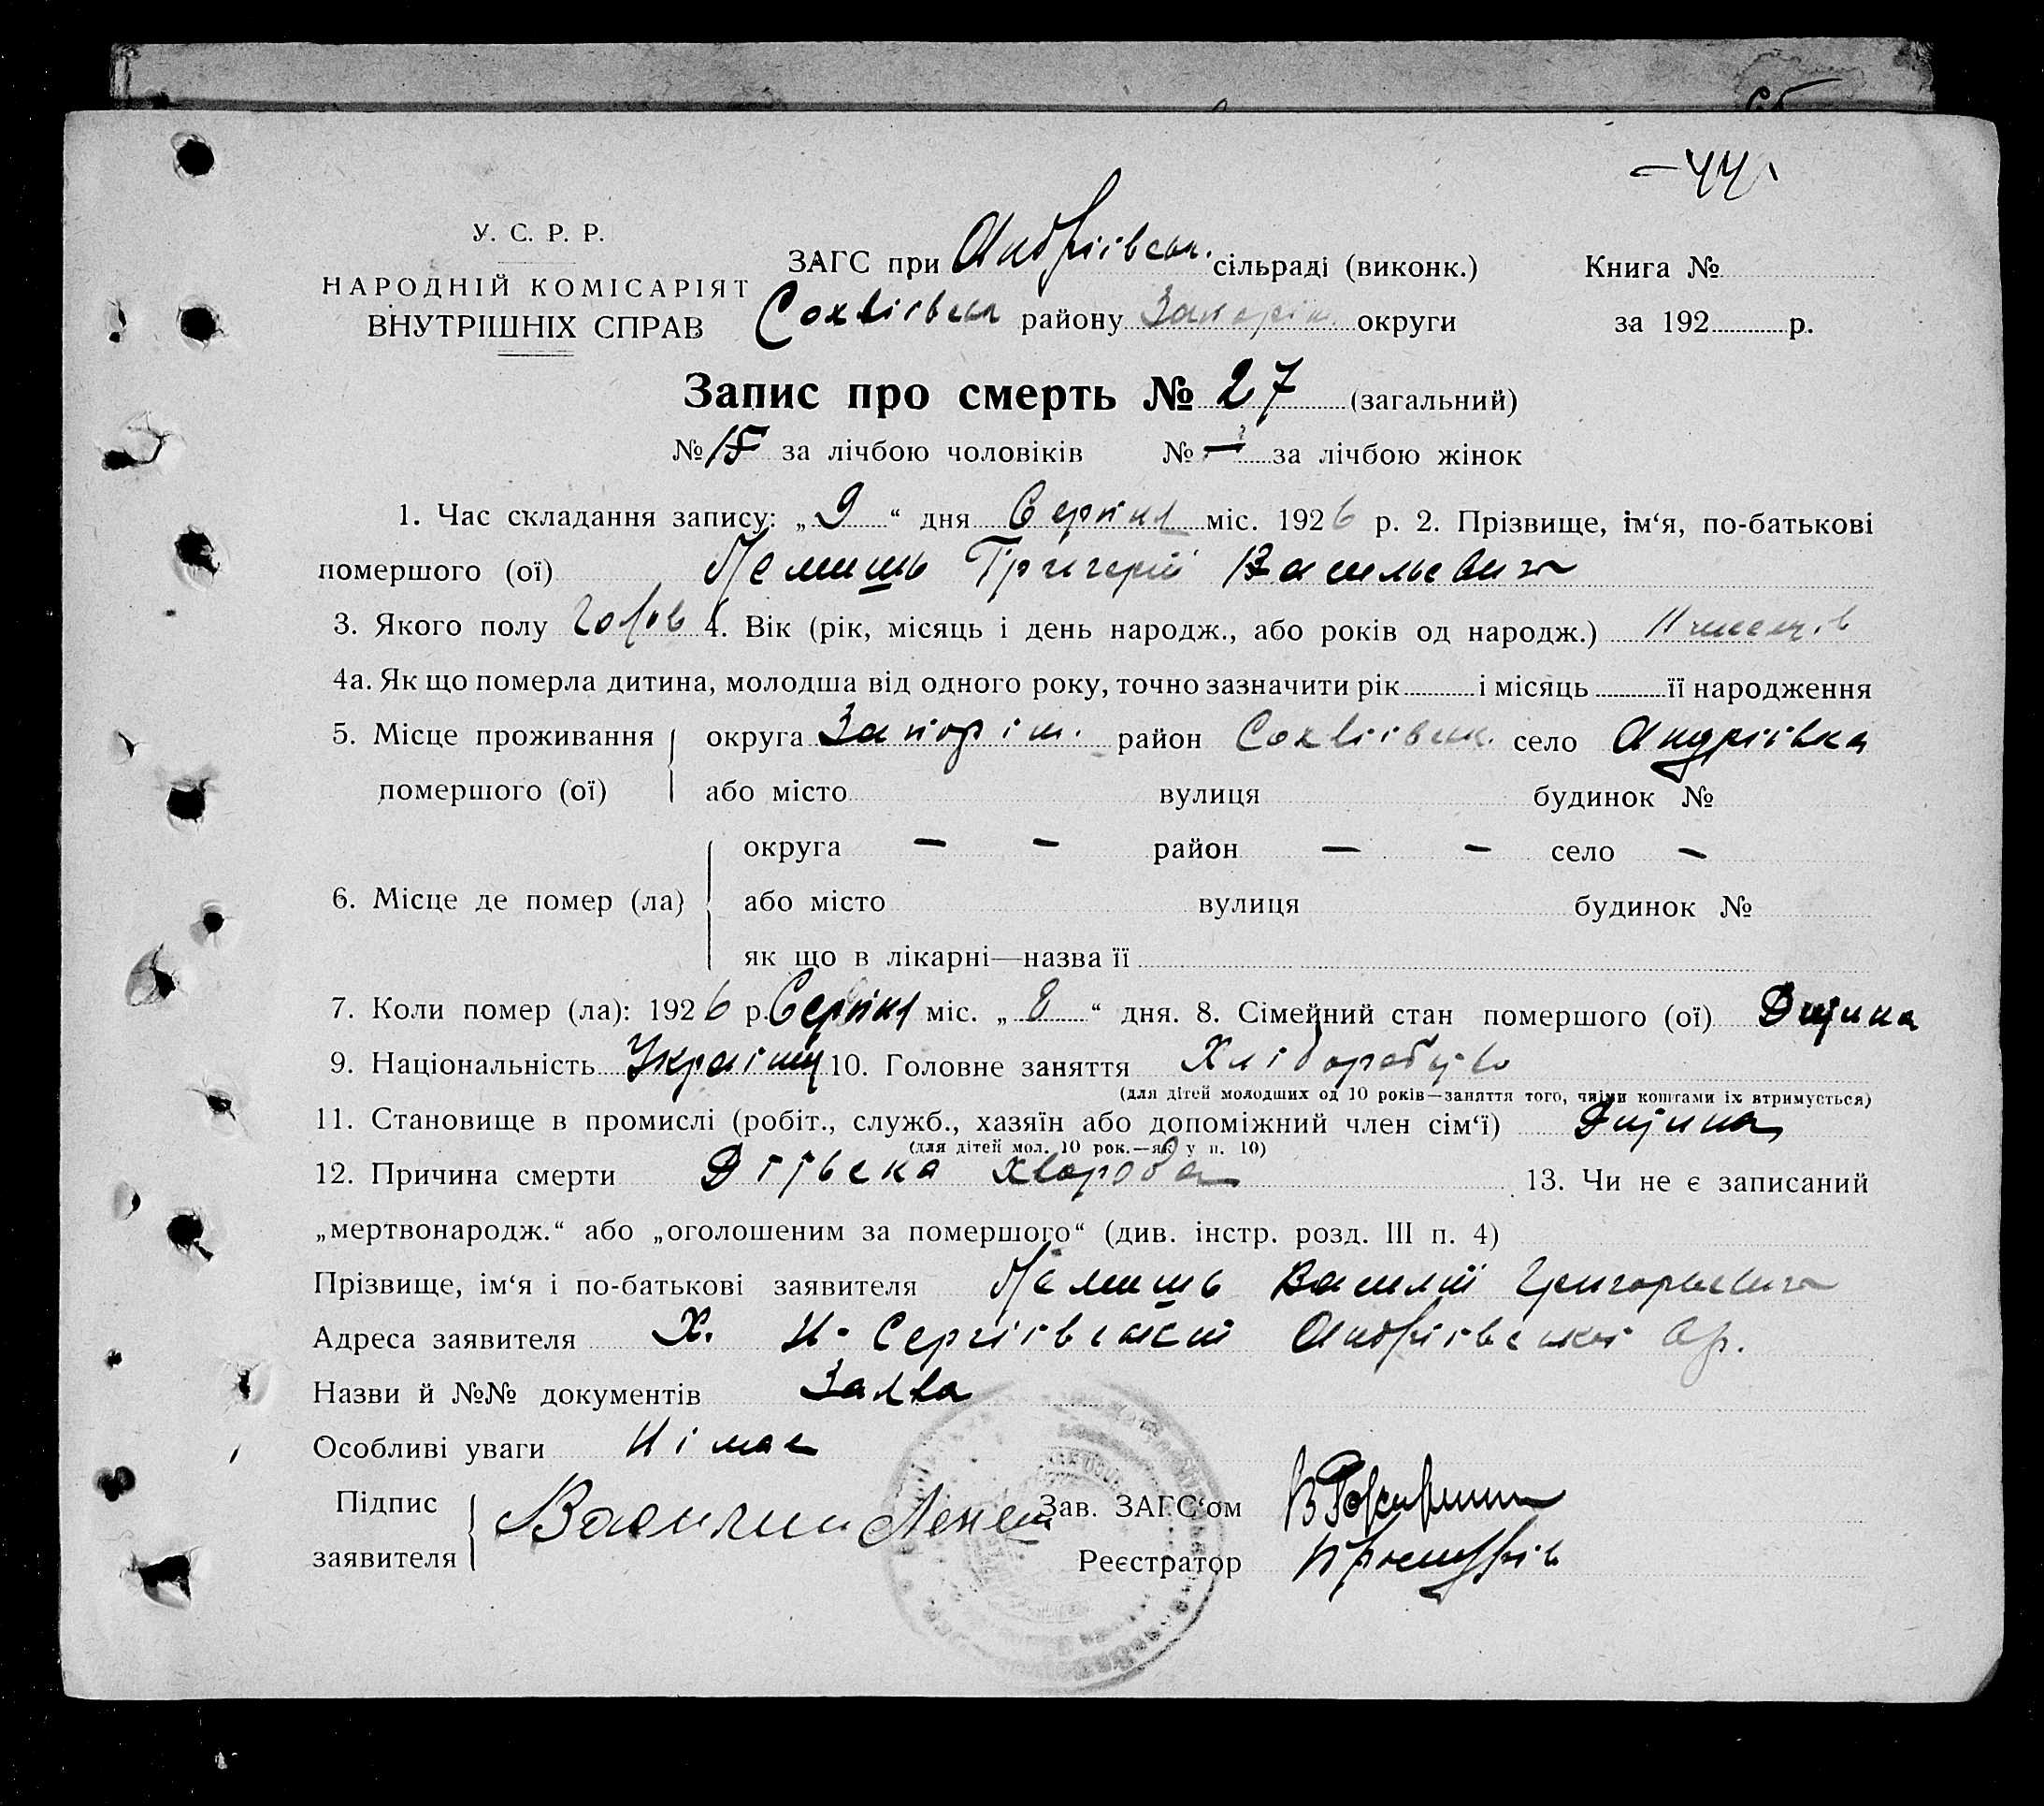 -44
У. С. Р. Р.
НАРОДНІЙ КОМІСАРІЯТ
ВНУТРІШНІХ СПРАВ
ЗАГС при Андріївськ. сільраді (виконк.) Книга №
Софіївськ району Запоріж. округи за 192 р.
Запис про смерть № 27 (загальний)
№ 15 за лічбою чоловіків № — за лічбою жінок
1. Час складання запису: „ 9 “ дня Серпня міс. 1926 р. 2. Прізвище, ім‘я, по-батькові
помершого (ої) Лемишь Григорій Васильевич
3. Якого полу Чолов 4. Вік (рік, місяць і день народж., або років од народж.) 11 місяців
4а. Як що померла дитина, молодша від одного року, точно зазначити рік і місяць її народження
5. Місце проживання округа Запоріж. район село Андріївка
помершого (ої) або місто вулиця будинок №
округа — — район — — село —
6. Місце де помер (ла) або місто вулиця будинок №
як що в лікарні—назва її
7. Коли помер (ла): 1926 р. Серпня міс. „ 8 “ дня. 8. Сімейний стан помершого (ої) Дитина
9. Національність 10. Головне заняття Хліборобство
(для дітей молодших од 10 років—заняття того, чиїми коштами їх втримується)
11. Становище в промислі (робіт., служб., хазяїн або допоміжний член сім‘ї) Дитина
(для дітей мол. 10 рок.—як у п. 10)
12. Причина смерти Дітьска хвороба 13. Чи не є записаний
„мертвонародж.“ або „оголошеним за помершого“ (див. інстр. розд. III п. 4)
Прізвище, ім‘я і по-батькові заявителя Лемишь Василій Григорьевич
Адреса заявителя Х. Н-Сергіївський Андріївської
Назви й №№ документів Заява
Особливі уваги Німає
Підпис
заявителя Василий
Зав. ЗАГС‘ом
Реєстратор